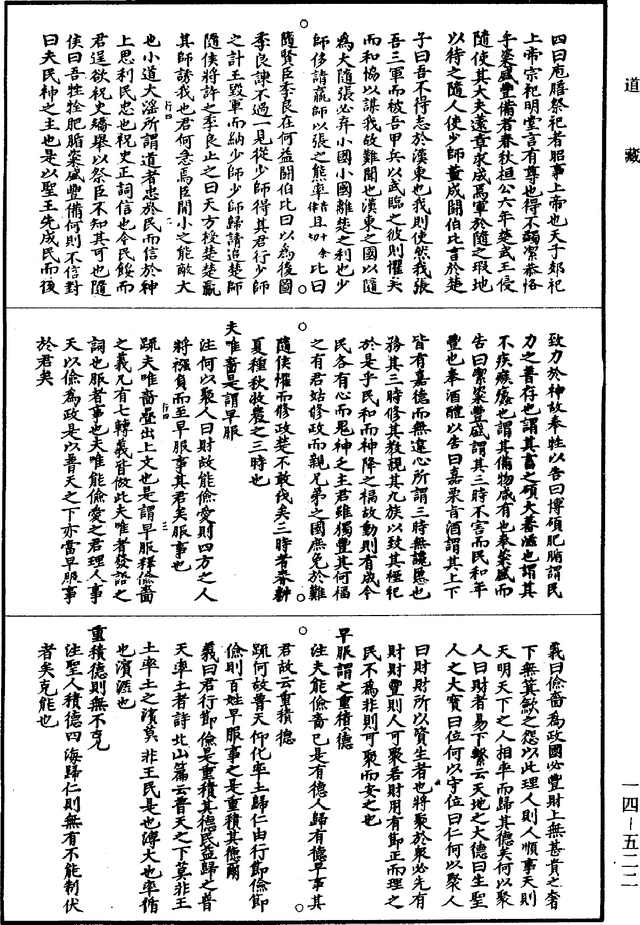 道藏
四曰庖膳祭祀者昭事上帝也天子郊祀
上帝宗祀明堂言有尊也得不蠲潔恭恪
乎粢盛豐備者春秋桓公六年楚武王侵
隨使其大夫薳章求成焉軍於隨之瑕地
以待之隨人使少師董成鬪伯比言於楚
子曰吾不得志於漢東也我則使然我張
吾三軍而被吾甲兵以武臨之彼則懼矣
而和協以謀我故難間也漢東之國以隨
為大隨張必弃小國小國離楚之利也少
師侈請羸師以張之熊率且比曰
隨賢臣季良在何益鬪伯比曰以為後圖
季良諫不過一見從少師得其君行少師
之計王毀軍而納少師少師歸請追楚師
隨侯將許之季良止之曰天方授楚楚羸
其師誘我也君何急焉臣聞小之能敵大
也小道大淫所謂道者忠於民而信於神
上思利民忠也祝史正詞信也今民餒而
君逞欲祝史矯舉以祭臣不知其可也隨
侯曰吾牲牷肥腯粢盛豐備何則不信對
曰夫民神之主也是以聖王先成民而後
致力於神故奉牲以告曰博碩肥腯謂民
力之普存也謂其畜之碩大蕃滋也謂其
不疾瘯蠡也謂其備物咸有也奉粢盛而
告曰潔粢豐盛謂其三時不害而民和年
豐也奉酒醴以告曰嘉栗旨酒謂其上下
皆有嘉德而無違心所謂三時無讒慝也
務其三時修其教親其九族以致其禋祀
於是乎民和而神降之福故動則有成今
民各有心而鬼神乏主君雖獨豐其何福
之有君姑修政而親兄弟之國庶免於難
隨侯懼而修政楚不敢伐矣三時者春耕
夏種秋收農之三時也
夫唯嗇是謂早服
注何以聚人曰財故能儉愛則四方之人
將襁負而至早服事其君矣服事也
疏夫唯嗇疊出上文也是謂早服釋儉嗇
之義凡有七轉義皆倣此夫唯者發語之
詞也服者事也夫唯能儉愛之君理人事
天以儉為政是以普天之下亦當早服事
於君矣
義曰儉嗇為政國必豐財上無甚貴之奢
下無箕斂之怨以此理人則人順事天則
天明天下之人相率而歸其德矣何以聚
人曰財者易下繫云天地之大德曰生聖
人之大寶曰位何以守位曰仁何以聚人
曰財財所以資生者也將聚於衆必先有
財財豐則人可聚若財用有節正而理之
民不為非則可聚而安之也
早服謂之重積德
注夫能儉嗇已是有德人歸有德早事其
君故云重積德
疏何故普天仰化率土歸仁由行節儉節
儉則百姓早服事之是重積其德爾
義曰君行節儉是重積其德民益歸之普
天率土者詩北山篇云普天之下莫非王
土率土之濱莫非王民是也溥大也率循
也濱涯也
重積德則無不克
注聖人積德四海歸仁則無有不能制伏
者矣克能也
一四—五二二